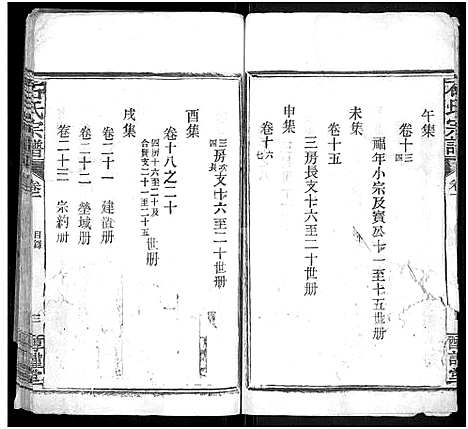 石氏宗譜
卷一
午集
卷十三 十四
福年小宗及寶公十一至十五世册
未集
卷十五
三房長支十六至二十世册
申集
卷十六 十七
三房次支十六至二十世册
酉集
卷十八之二十
四房十六至二十及
合賢支二十一至二十五世册
戌集
卷二十一 建置册
卷二十二 塋域册
卷二十三 宗約册
石氏宗譜
卷一
目錄
三